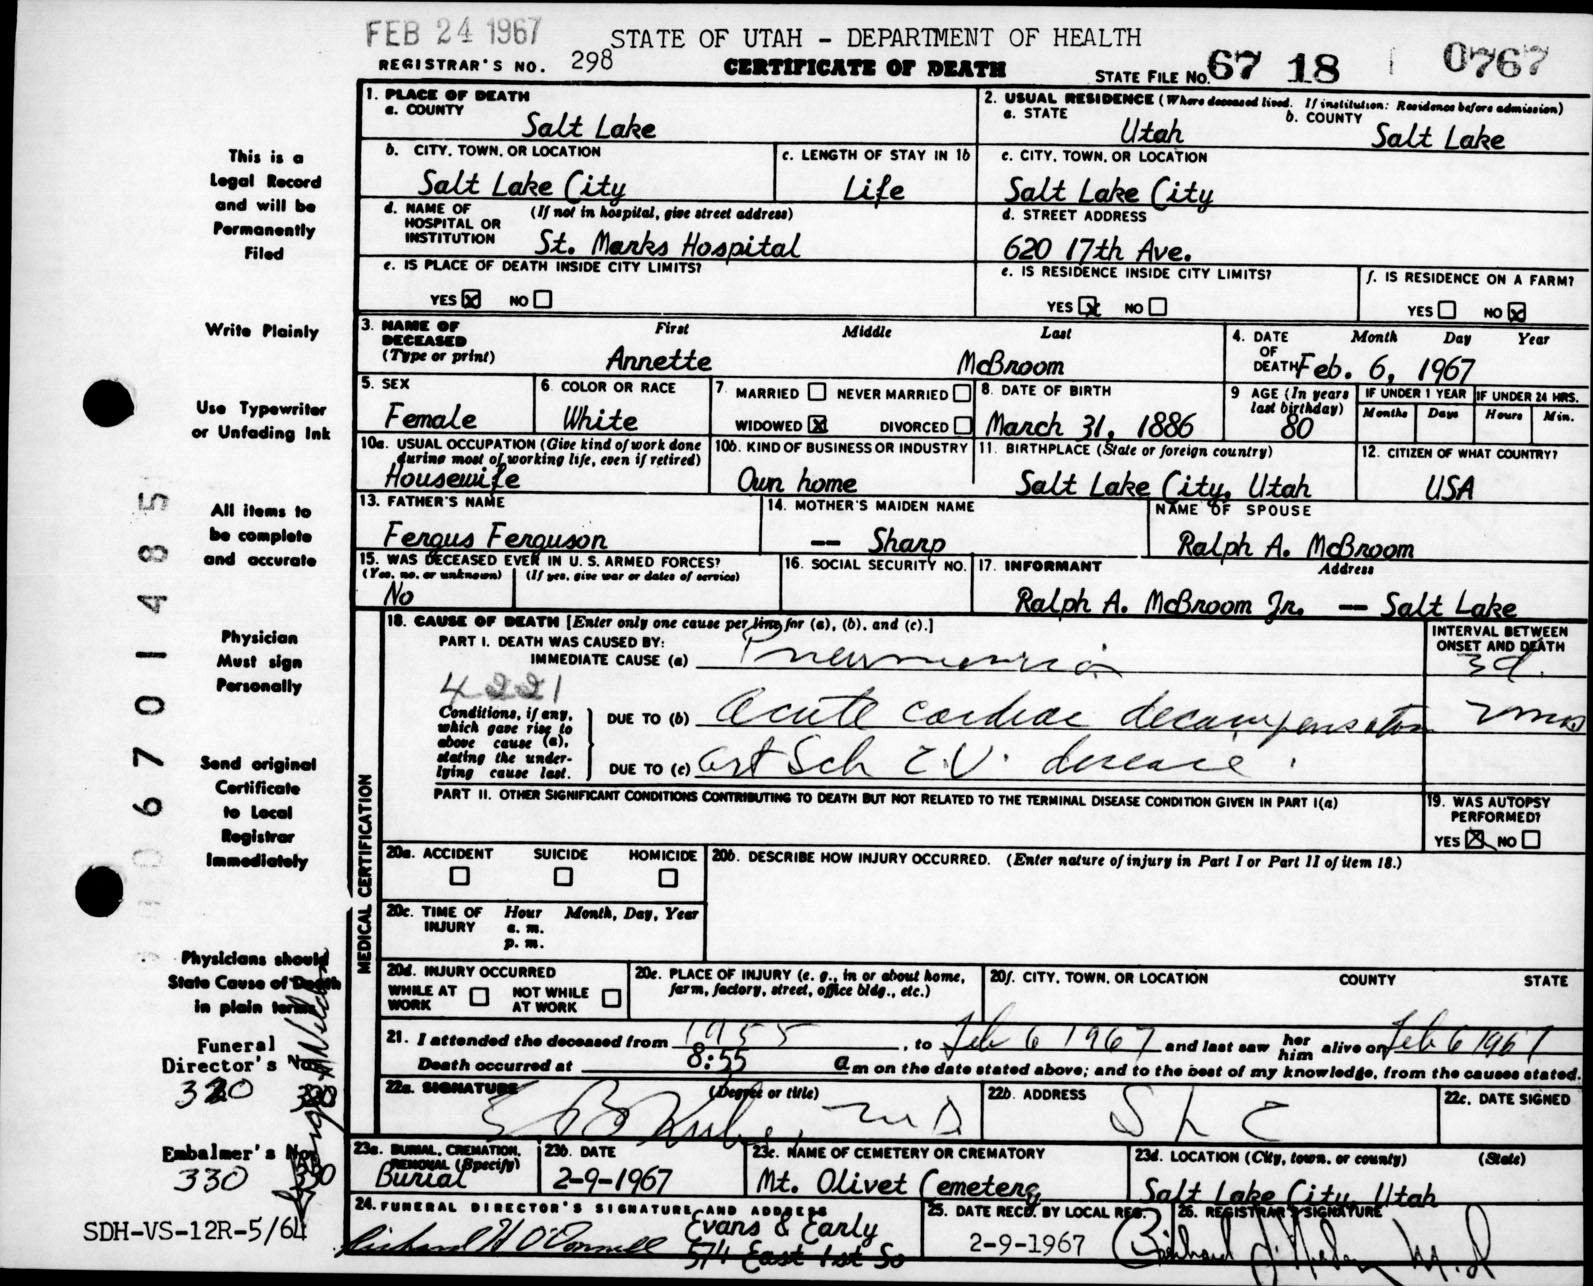 FEB 24 1967
STATE OF UTAH - DEPARTMENT OF HEALTH
REGISTRAR'S NO. 298
CERTIFICATE OF DEATH
STATE FILE NO. 67 18 0767
1. PLACE OF DEATH
a. COUNTY
Salt Lake
2. USUAL RESIDENCE (Where deceased lived. If institution: Residence before admission)
a. STATE
Utah
b. COUNTY
Salt Lake
b. CITY, TOWN, OR LOCATION
Salt Lake City
c. LENGTH OF STAY IN 1b
Life
c. CITY, TOWN, OR LOCATION
Salt Lake City
d. NAME OF HOSPITAL OR INSTITUTION
(If not in hospital, give street address)
St. Marks Hospital
d. STREET ADDRESS
620 17th Ave.
e. IS PLACE OF DEATH INSIDE CITY LIMITS?
YES NO
e. IS RESIDENCE INSIDE CITY LIMITS?
YES NO
f. IS RESIDENCE ON A FARM?
YES NO
3. NAME OF DECEASED
(Type or print)
First Middle Last
Annette McBroom
4. DATE OF DEATH
Month Day Year
Feb. 6, 1967
5. SEX
Female
6. COLOR OR RACE
White
7. MARRIED NEVER MARRIED
WIDOWED DIVORCED
8. DATE OF BIRTH
March 31, 1886
9 AGE (In years last birthday)
80
IF UNDER 1 YEAR
Months Days
IF UNDER 24 HRS.
Hours Min.
10a. USUAL OCCUPATION (Give kind of work done during most of working life, even if retired)
Housewife
10b. KIND OF BUSINESS OR INDUSTRY
Own home
11. BIRTHPLACE (State or foreign country)
Salt Lake City, Utah
12. CITIZEN OF WHAT COUNTRY?
USA
13. FATHER'S NAME
Fergus Ferguson
14. MOTHER'S MAIDEN NAME
-- Sharp
NAME OF SPOUSE
Ralph A. McBroom
15. WAS DECEASED EVER IN U. S. ARMED FORCES?
(Yes, no, or unknown) (If yes, give war or dates of service)
No
16. SOCIAL SECURITY NO.
17. INFORMANT Address
Ralph A. McBroom Jr. -- Salt Lake
MEDICAL CERTIFICATION
18. CAUSE OF DEATH [Enter only one cause per line for (a), (b), and (c).]
PART I. DEATH WAS CAUSED BY:
IMMEDIATE CAUSE (a) Pneumonia
INTERVAL BETWEEN ONSET AND DEATH
3d.
4221
Conditions, if any, which gave rise to above cause (a), stating the underlying cause last.
DUE TO (b) Acute cardiac decompensation 2 mos
DUE TO (c) Art Sch C.V. disease.
PART II. OTHER SIGNIFICANT CONDITIONS CONTRIBUTING TO DEATH BUT NOT RELATED TO THE TERMINAL DISEASE CONDITION GIVEN IN PART I(a)
19. WAS AUTOPSY PERFORMED?
YES NO
20a. ACCIDENT SUICIDE HOMICIDE
20b. DESCRIBE HOW INJURY OCCURRED. (Enter nature of injury in Part I or Part II of item 18.)
20c. TIME OF INJURY
Hour Month, Day, Year
a. m.
p. m.
20d. INJURY OCCURRED
WHILE AT WORK NOT WHILE AT WORK
20e. PLACE OF INJURY (e. g., in or about home, farm, factory, street, office bldg., etc.)
20f. CITY, TOWN, OR LOCATION COUNTY STATE
21. I attended the deceased from 1955, to Feb 6 1967 and last saw her him alive on Feb 6 1967
Death occurred at 8:55 am on the date stated above; and to the best of my knowledge, from the causes stated.
22a. SIGNATURE (Degree or title)
M D.
22b. ADDRESS
S L C
22c. DATE SIGNED
23a. BURIAL, CREMATION, REMOVAL (Specify)
Burial
23b. DATE
2-9-1967
23c. NAME OF CEMETERY OR CREMATORY
Mt. Olivet Cemetery
23d. LOCATION (City, town, or county) (State)
Salt Lake City, Utah
24. FUNERAL DIRECTOR'S SIGNATURE AND ADDRESS
Richard H O'Connell
Evans & Early
574 East 1st So
25. DATE RECD. BY LOCAL REG.
2-9-1967
26. REGISTRAR'S SIGNATURE
This is a
Legal Record
and will be
Permanently
Filed
Write Plainly
Use Typewriter
or Unfading Ink
All items to
be complete
and accurate
Physician
Must sign
Personally
Send original
Certificate
to Local
Registrar
Immediately
Physicians should
State Cause of Death
in plain terms
Funeral
Director's No.
320
Embalmer's No.
330
SDH-VS-12R-5/64
6701485